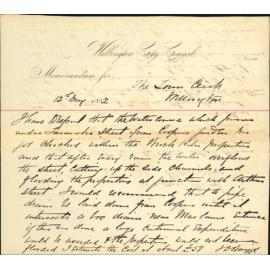 Wellington City Council
Memorandum for
The Town Clerk
12th May 1882
Wellington
I have to report that the watercourse which passes
under Taranaki Street from Coopers garden has
got choked within the Brick
and that after every rain the water overflows
the street, cutting up the side channels and
flooding the properties at junction with Arthur
street I would recommend that a pipe
drain be laid down from Coopers until it
intersects a box drain near entrance
if this is done a large annual expenditure
would be avoided & the properties would not become
flooded I estimate the cost at about £58